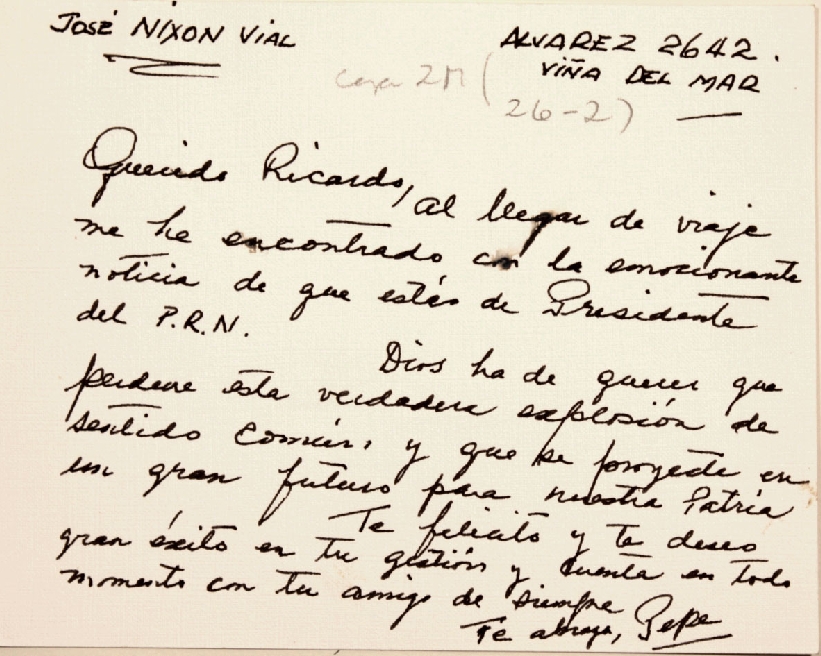 JOSÉ NIXON VIAL
ALVAREZ 2642.
VIÑA DEL MAR
26-2)
Querido Ricardo,
al llegar de viaje
me he encontrado con la emocionante
noticia de que estás de Presidente
del P.R.N.
Dios ha de querer que
perdure esta verdadera explosión de
sentido común, y que se proyecte en
un gran futuro para nuestra Patria
Te felicito y te deseo
gran éxito en tu gestión y cuenta en todo
momento con tu amigo de siempre
Te abraza, Pepe